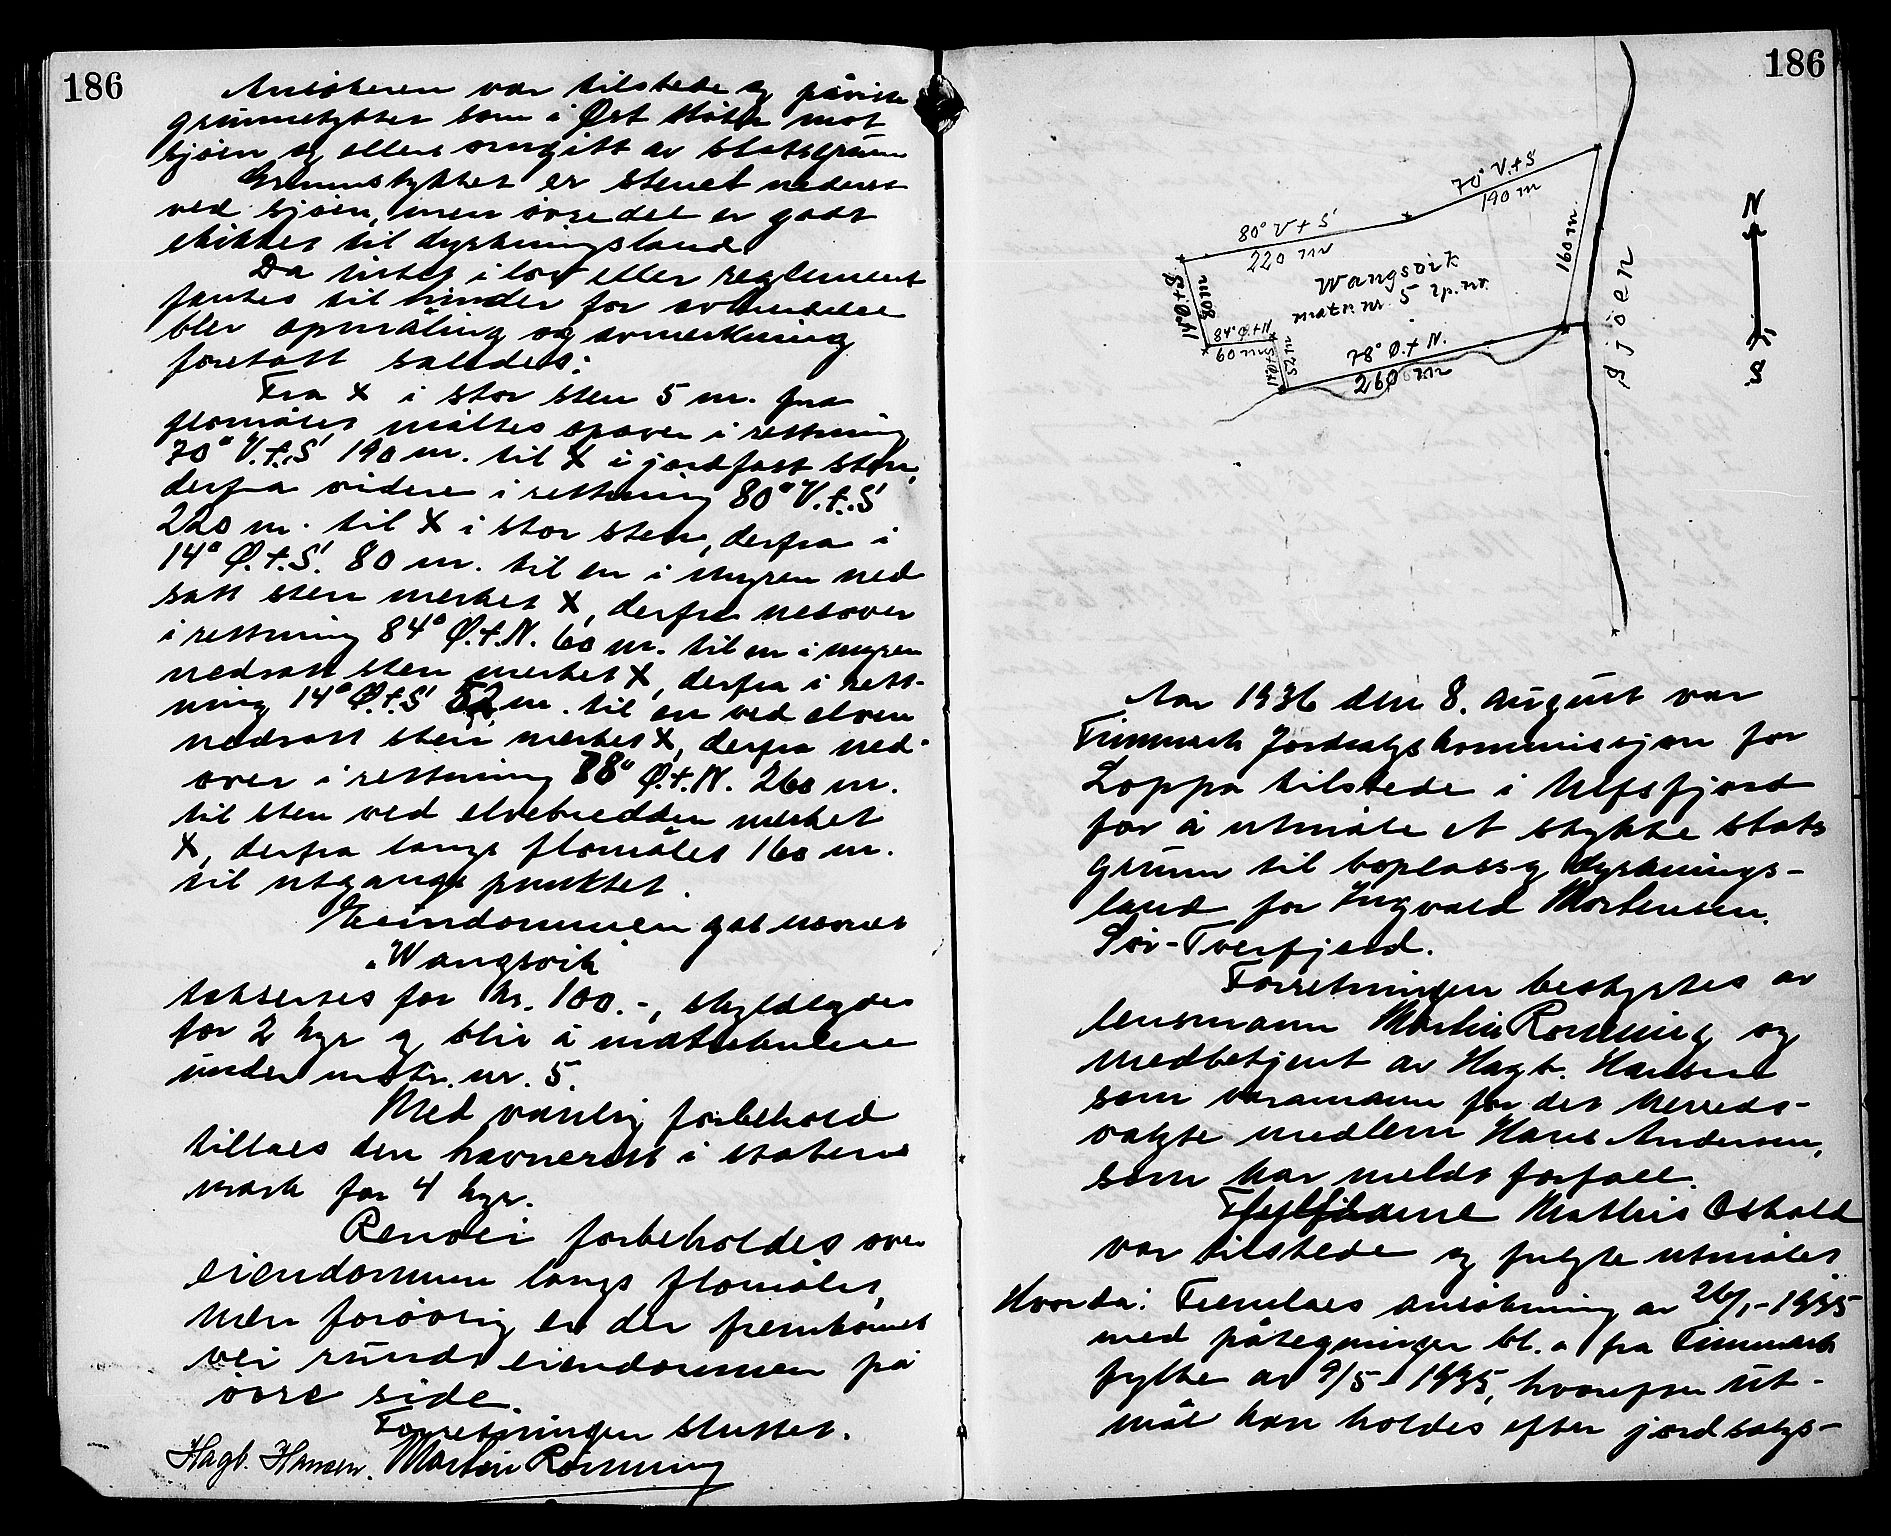 186
Ansökeren var tilstede og påviste
grunnstykket som i Øst støter mot
sjöen og ellers omgitt av statsgrunn
Grunnstykket er stenet nederst
ved sjöen, men övre del er godt
skikket til dyrkningsland
Da intet i lov eller reglement
fantes til hinder for avhendelse
blev opmåling og avmerkning
foretatt således:
Fra X i stor sten 5 m. fra
flomålet måltes opover i rettning
70° V.t.S. 190 m. til X i jordfast sten,
derfra videre i rettning 80° V.t.S
220 m. til X i stor sten, derfra i
14° Ø.t.S. 80 m. til en i myren ned
satt sten merket X, derfra nedover
i rettning 84° Ø.t.N. 60 m. til en i myren
nedsatt sten merket X, derfra i rett-
ning 14° Ø.t.S 52 m. til en ved elven
nedsatt sten merket X, derfra ned-
over i rettning 78° Ø.t.N. 260 m.
til sten ved elvebredden merket
X, derfra langs flomålet 160 m.
til utgangspunktet.
Eiendommen gat navnet
"Wangsvik"
takseres for kr. 100.-, skyldlagdes
for 2 hyr og blir å matrikulere
under matr. nr. 5.
Med vanlig forbehold
tillaes den havnerett i statens
mark for 4 kyr.
Renvei forbeholdes over
eiendommen langs flomålet,
men forövrig er der fremkomst
vei rundt eiendommen på
övre side.
Forretningen sluttet.
Hagb. Hansen. Martin Rönning
186
70° V.t.S
190 m
80° V t S
220 m
160 m.
Wangsvik
matr. nr. 5 lp. nr.
14° Ø t S
80 m
84° Ø.t.N
60 m
14° Ø t S
52 m
78° Ø.t.N.
260 m
Sjöen
N
S
Aar 1936 den 8. august var
Finnmark Jordsalgskommissjon for
Loppa tilstede i Ulfsfjord
for å utmåle et stykke stats
grunn til boplass og dyrknings-
land for Ingvald Mortensen.
Sör-Tverfjord.
Forretningen bestyrtes av
lensmann Martin Rönning og
medbetjent av Hagb. Hansen
som varamann for det herreds-
valgte medlem Hans Andersen,
som har meldt forfall.
Mathis Oskald
var tilstede og fulgte utmålet
Hvorda: Fremlaes ansökning av 26/1-1935
med påtegninger bl. a fra Finnmark
fylke av 9/5-1935, hvorefter ut-
mål kan holdes efter jordsalgs-